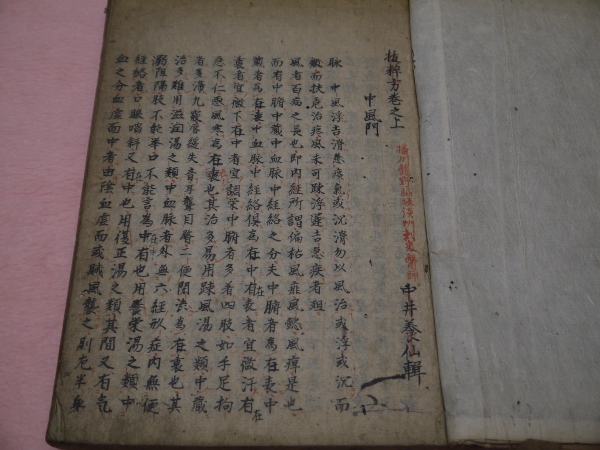 抜粹方卷之上
中井養仙輯
中風門
脉 中風浮吉滑兼痰氣或沉滑勿以風治或浮或沉而
微而扶危治痰風未可疎浮遲吉急疾者殂
風者百病之長也即内經所謂偏枯風痱風懿風痺是也
而有中腑中藏中血脉中經絡之分夫中腑者為在表中
藏者為在裏中血脉中經絡俱為在中在表者宜微汗在
裏者宜微下在中者宜調榮中腑者多着四肢如手足拘
急不仁惡風寒為在表也其治多易用疎風湯之類中藏
者多滯九竅唇緩失音耳聾目瞀二便閉澁為在裏也其
治多難用滋潤湯之類中血脉者外無六經形症内無便
溺阻隔肢不能舉口不能言為在中也用養榮湯之類中
經絡者口眼喎斜又在中也用復正湯之類其間又有氣
血之分血虛而中者由陰血虛而賊風襲之則左半身